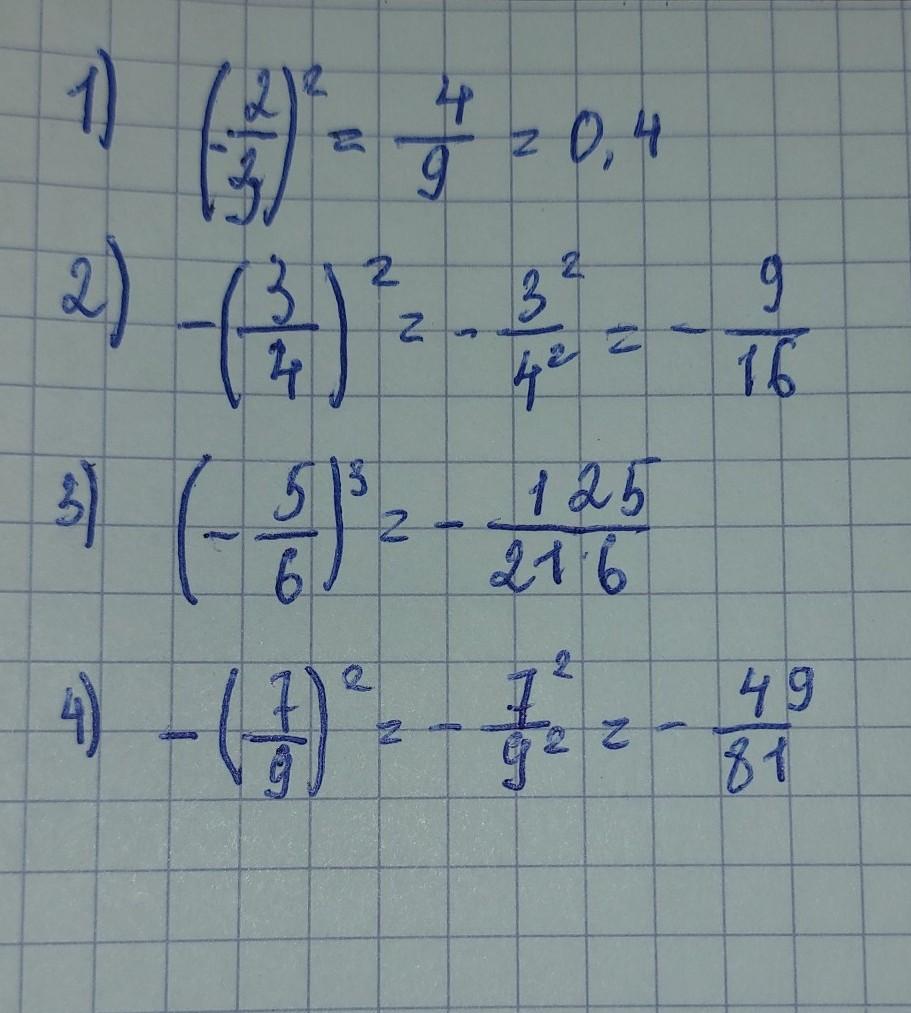 1) (-2/3)² = 4/9 = 0,4
2) -(3/4)² = -3²/4² = -9/16
3) (-5/6)³ = -125/216
4) -(7/9)² = -7²/9² = -49/81